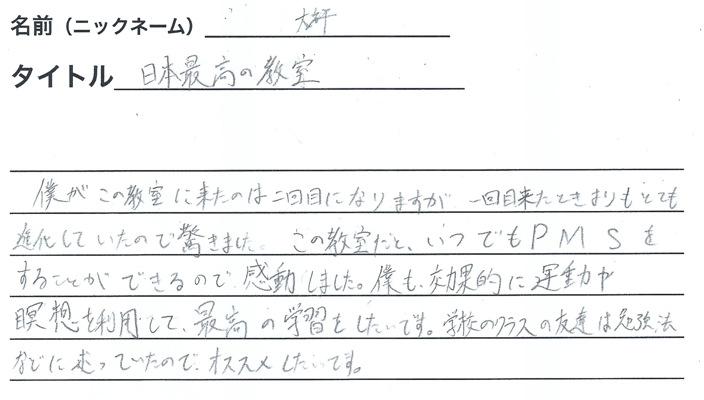 名前（ニックネーム） 大軒
タイトル 日本最高の教室
僕がこの教室に来たのは二回目になりますが、一回目来たときよりもとても
進化していたので驚きました。この教室だと、いつでもPMSを
することができるので、感動しました。僕も、効果的に運動や
瞑想を利用して、最高の学習をしたいです。学校のクラスの友達は勉強法
などに迷っていたので、オススメしたいです。